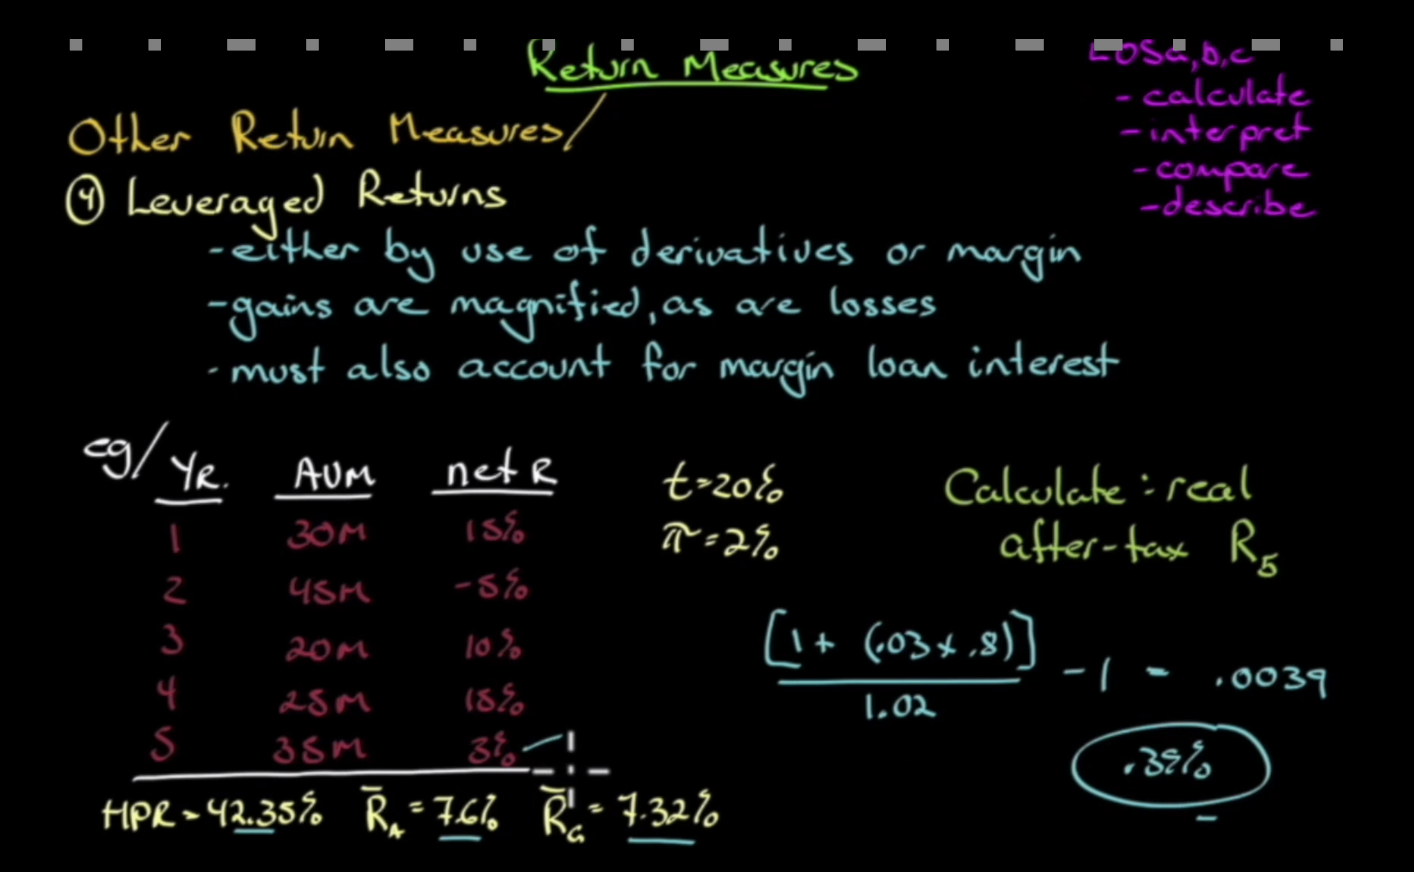 Return Measures
LOSa,b,c
- calculate
- interpret
- compare
- describe
Other Return Measures/
④ Leveraged Returns
- either by use of derivatives or margin
- gains are magnified, as are losses
- must also account for margin loan interest
eg/ YR. AUM net R
1 30M 15%
2 45M -5%
3 20M 10%
4 25M 15%
5 35M 3%
HPR = 42.35% R̄A = 7.6% R̄G = 7.32%
t = 20%
π = 2%
Calculate : real
after-tax R5
[1 + (.03 x .8)]
1.02
- 1 = .0039
.39%